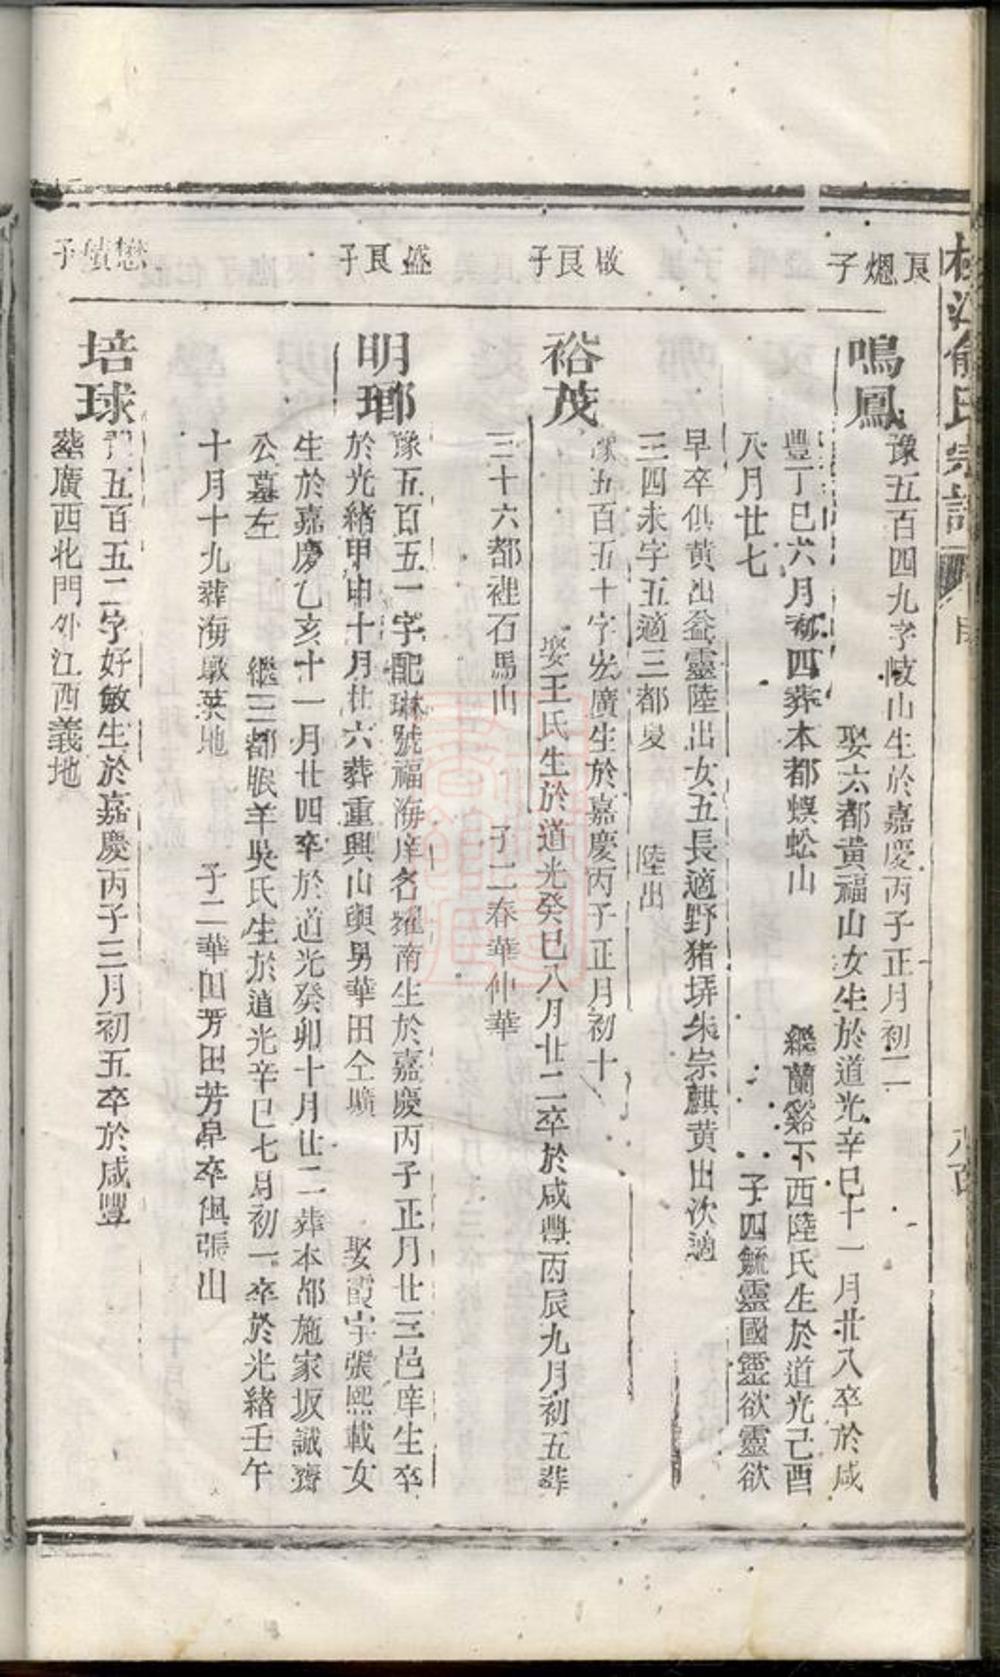 俞氏宗譜
良熜子
鳴鳳
豫五百四九字岐山生於嘉慶丙子正月初二
娶六都黃福山女生於道光辛巳十一月廿八卒於咸
豐丁巳六月初四葬本都蜈蚣山 繼蘭谿下西陸氏生於道光己酉
八月廿七 子四毓靈國靈欲靈欲
早卒俱黃出益靈陸出女五長適野猪塝朱宗麒黃出次適
三四未字五適三都夏 陸出
敬良子
裕茂
豫五百五十字宏廣生於嘉慶丙子正月初十
娶王氏生於道光癸巳八月廿二卒於咸豐丙辰九月初五葬
三十六都裡石馬山 子二春華仲華
盛良子
明瑯
豫五百五一字配琳號福海庠名耀南生於嘉慶丙子正月廿三邑庠生卒
於光緒甲申十月廿六葬重興山與男華田仝壙 娶霞宇張熙載女
生於嘉慶乙亥十一月廿四卒於道光癸卯十月廿二葬本都施家坂誠齋
公墓左 繼三都眼羊吳氏生於道光辛巳七月初一卒於光緒壬午
十月十九葬海墩葉地 子二華田芳田芳早卒俱張出
懋績子
培球
五百五二字好敏生於嘉慶丙子三月初五卒於咸豐
葬廣西北門外江西義地